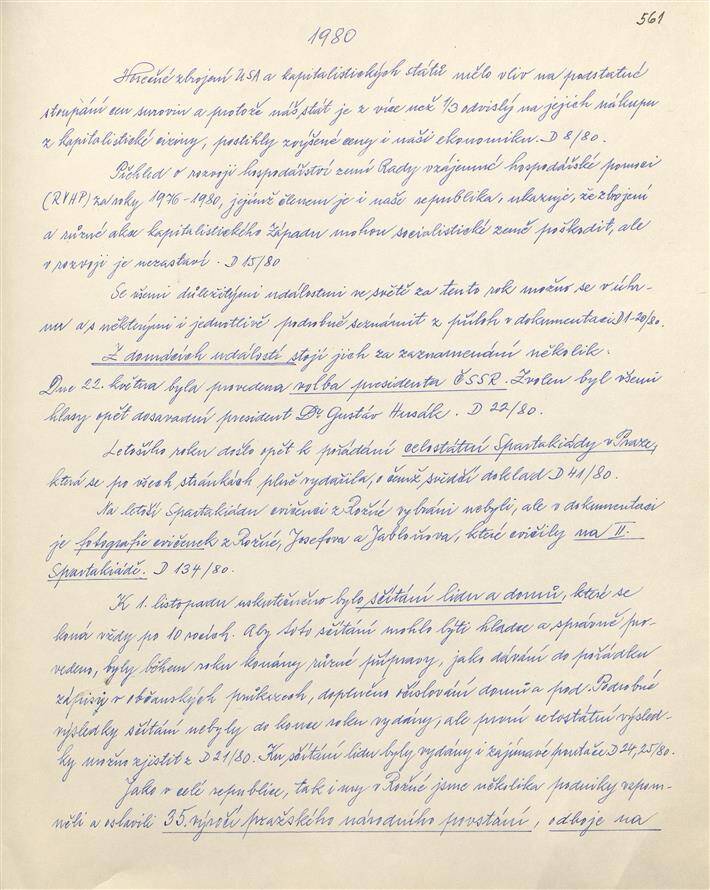 561
1980
Horečné zbrojení USA a kapitalistických států mělo vliv na podstatné
stoupání cen surovin a protože náš stát je z více než 1/3 odvislý na jejich nákupu
z kapitalistické ciziny, postihly zvýšené ceny i naši ekonomiku. D 8/80.
Přehled o rozvoji hospodářství zemí Rady vzájemné hospodářské pomoci
(RVHP) za roky 1976-1980, jejímž členem je i naše republika, ukazuje, že zbrojení
a různé akce kapitalistického Západu mohou socialistické země poškodit, ale
v rozvoji je nezastaví. D 15/80
Se všemi důležitými událostmi ve světě za tento rok možno se v úhr-
nu a s některými i jednotlivě podrobně seznámit z příloh v dokumentaci D 1-20/80.
Z domácích událostí stojí jich za zaznamenání několik.
Dne 22. května byla provedena volba presidenta ČSSR. Zvolen byl všemi
hlasy opět dosavadní president Dr Gustáv Husák. D 22/80.
Letošího roku došlo opět k pořádání celostátní Spartakiády v Praze,
která se po všech stránkách plně vydařila, o čemž svědčí doklad D 41/80.
Na letoší Spartakiádu cvičenci z Rožné vybráni nebyli, ale v dokumentaci
je fotografie cvičenek z Rožné, Josefova a Jabloňova, které cvičily na II.
Spartakiádě. D 134/80.
K 1. listopadu uskutečněno bylo sčítání lidu a domů, které se
koná vždy po 10 rocích. Aby toto sčítání mohlo býti hladce a správně pro-
vedeno, byly během roku konány různé přípravy, jako dávání do pořádku
zápisy v občanských průkazech, doplněno očíslování domů a pod. Podrobné
výsledky sčítání nebyly do konce roku vydány, ale první celostátní výsled-
ky možno zjistit z D 21/80. Ku sčítání lidu byly vydány i zajímavé poutače D 24,25/80.
Jako v celé republice, tak i my v Rožné jsme několika podniky vzpom-
něli a oslavili 35. výročí pražského národního povstání, odboje na